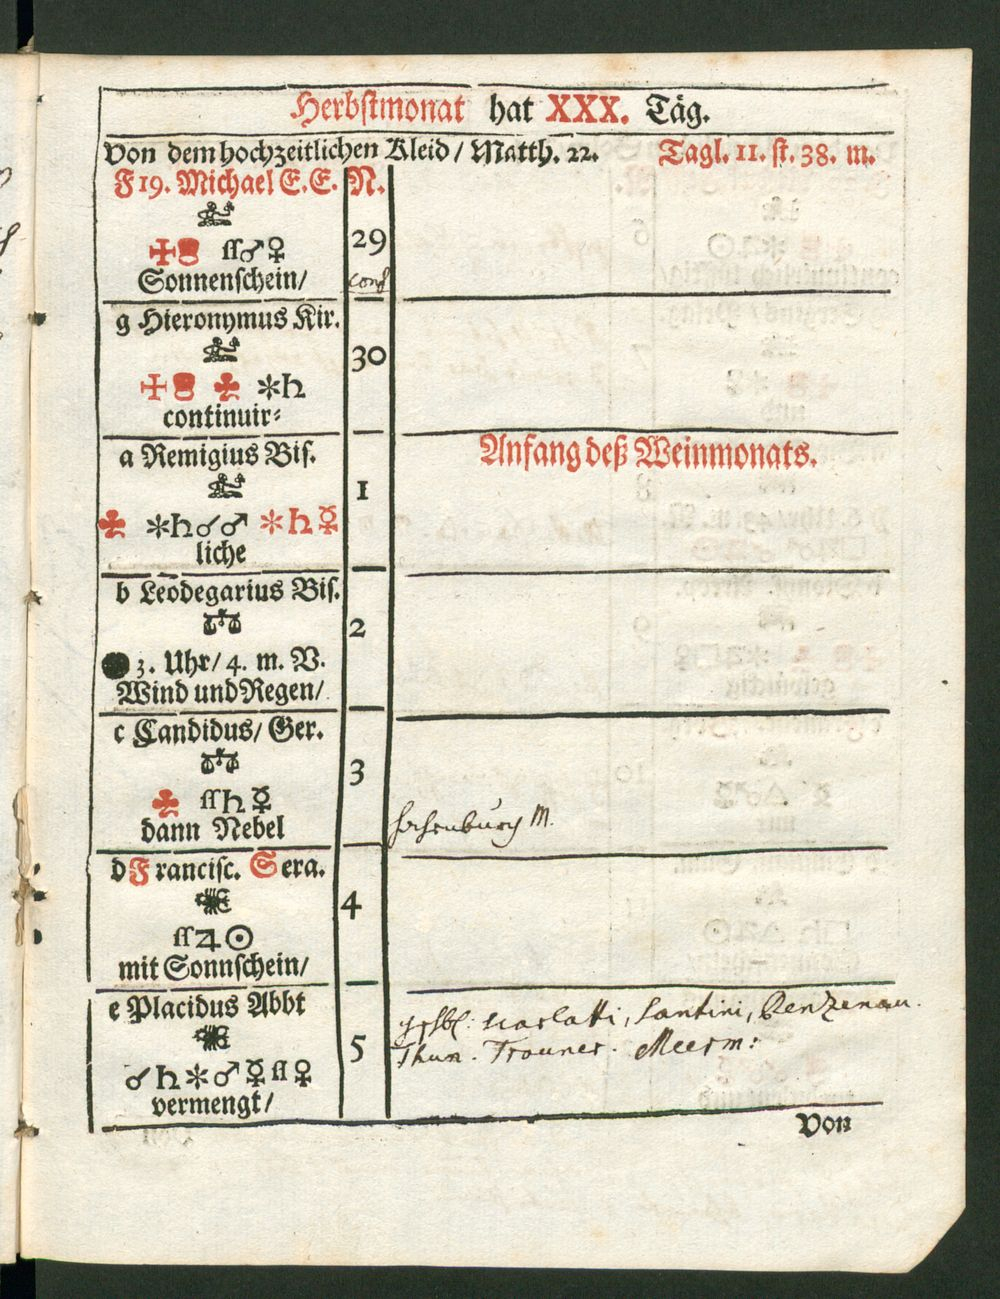 Herbstmonat hat XXX. Täg.
Von dem hochzeitlichen Kleid / Matth. 22. Tagl. 11. st. 38. m.
F 19. Michael E. E. N.
29
Sonnenschein/
conf
g Hieronymus Kir.
30
✱♄
continuir⸗
Anfang deß Weinmonats.
a Remigius Bis.
1
✱♄☌♂ ✱♄☿
liche
b Leodegarius Bis.
2
3. Uhr/ 4. m. V.
Wind und Regen/
c Candidus/ Ger.
3
♄☿
dann Nebel
Hohenburg M.
d Francisc. Sera.
4
♃☉
mit Sonnschein/
e Placidus Abbt
5
☌♄✱♂☿ ♀
vermengt/
Scarlatti, Santini, Benzenau.
Thun. Trauner. Meerm:
Von